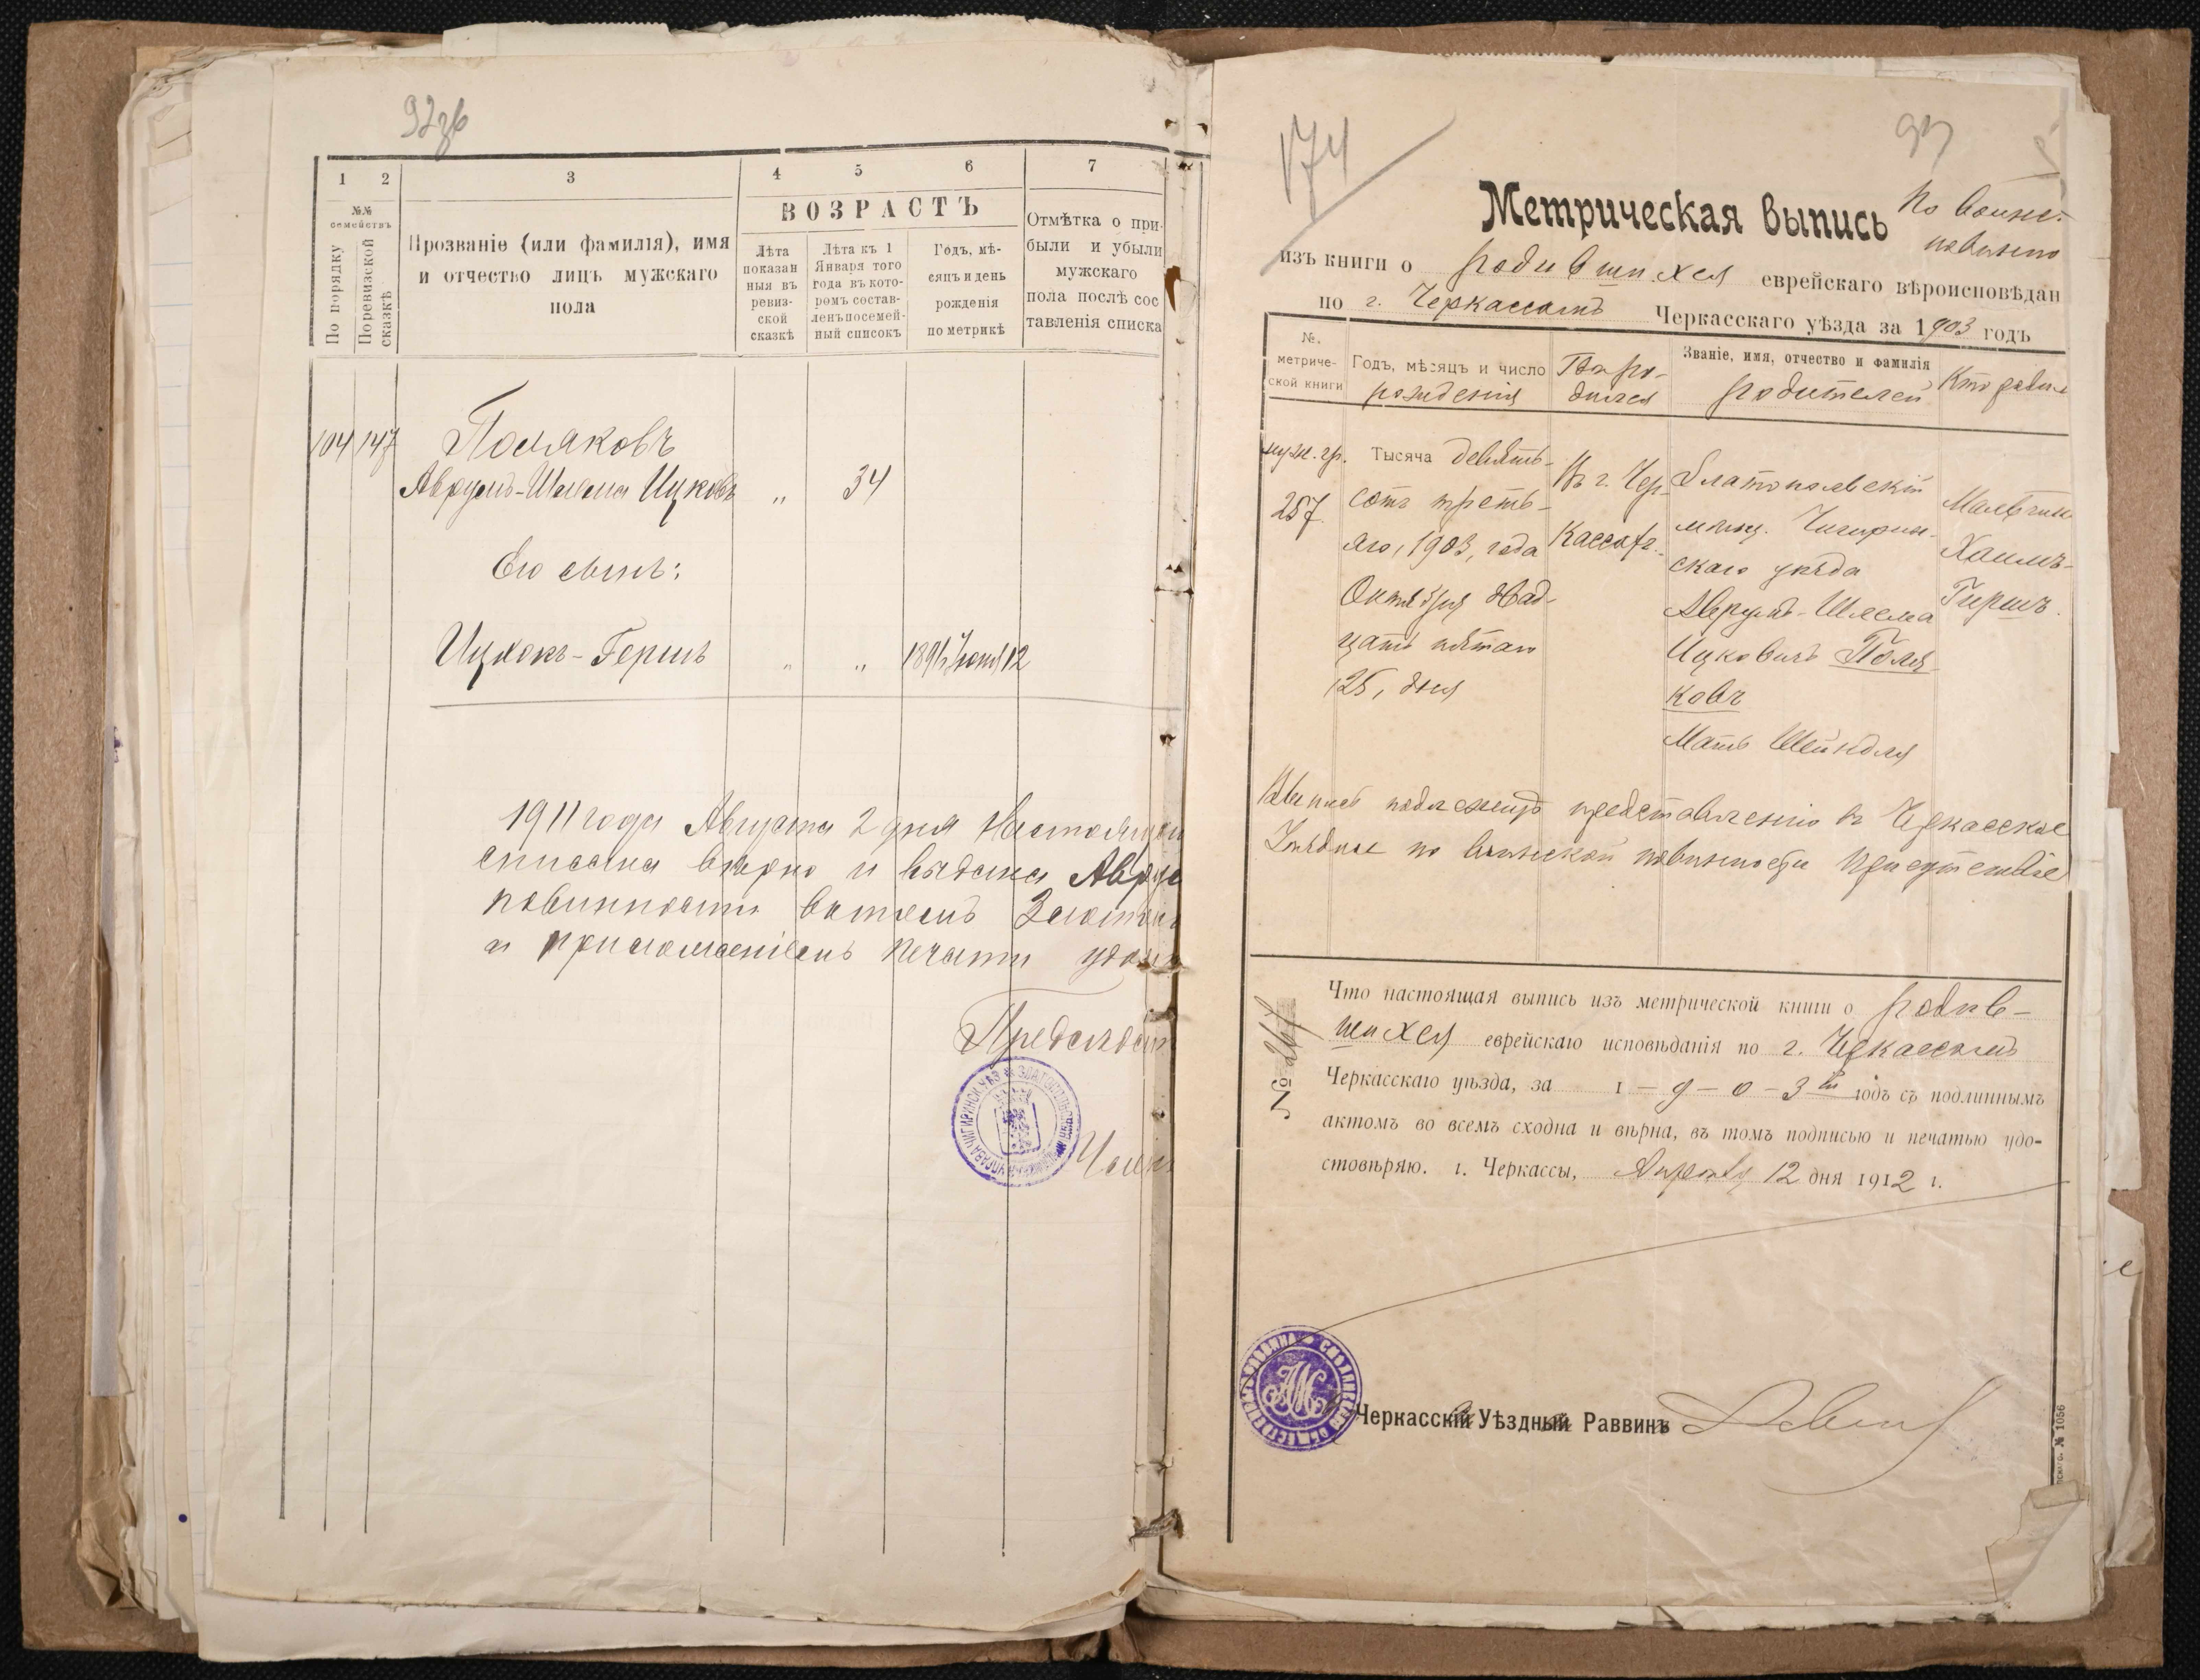 92об
1 2 3 4 5 6 7
№№ семействъ
По порядку
По ревизской сказкѣ
Прозваніе (или фамилія), имя
и отчество лицъ мужскаго
пола
ВОЗРАСТЪ
Лѣта
показан
ныя въ
ревиз-
ской
сказкѣ
Лѣта къ 1
Января того
года въ кото-
ромъ состав-
ленъ посемей-
ный списокъ
Годъ, мѣ-
сяцъ и день
рожденія
по метрикѣ
Отмѣтка о при-
были и убыли
мужскаго
пола послѣ сос
тавленія списка
104 147 Поляковъ
Аврумъ-Шлема Ицковъ „ 34
Его сынъ:
Ицхокъ-Гершъ „ „ 1891 Іюня 12
1911 года Августа 2 дня Настоящая
списана вѣрно и выдана Авру
повинности въ томъ Златоп
и приложеніемъ печати удос
Предсѣдат
Член
174
93
Метрическая выпись
По воинс.
повинно
изъ книги о родившихся еврейскаго вѣроисповѣдан
по г. Черкассамъ Черкасскаго уѣзда за 1903 годъ
№.
метриче-
ской книги
Годъ, мѣсяцъ и число
рожденія
Гдѣ ро-
дился
Званіе, имя, отчество и фамилія
родителей
Кто родился
муж. гр.
257.
Тысяча девять-
сотъ треть-
яго, 1903, года
Октября двад-
цать пятаго
25, дня
Въ г. Чер-
кассахъ.
Златопольскій
мѣщ. Чигирин-
скаго уѣзда
Аврумъ-Шлема
Ицковичъ Поля-
ковъ
Мать Шейндля
Мальчикъ
Хаимъ-
Гершъ.
Выпись подлежитъ представленію въ Черкасское
Уѣздное по воинской повинности Присутствіе
№ 267
Что настоящая выпись изъ метрической книги о родив-
шихся еврейскаго исповѣданія по г. Черкассамъ
Черкасскаго уѣзда, за 1-9-0-3 й годъ съ подлиннымъ
актомъ во всемъ сходна и вѣрна, въ томъ подписью и печатью удо-
стовѣряю. г. Черкассы, Апрѣля 12 дня 1912 г.
Черкасскій Уѣздный Раввинъ
№ 1056